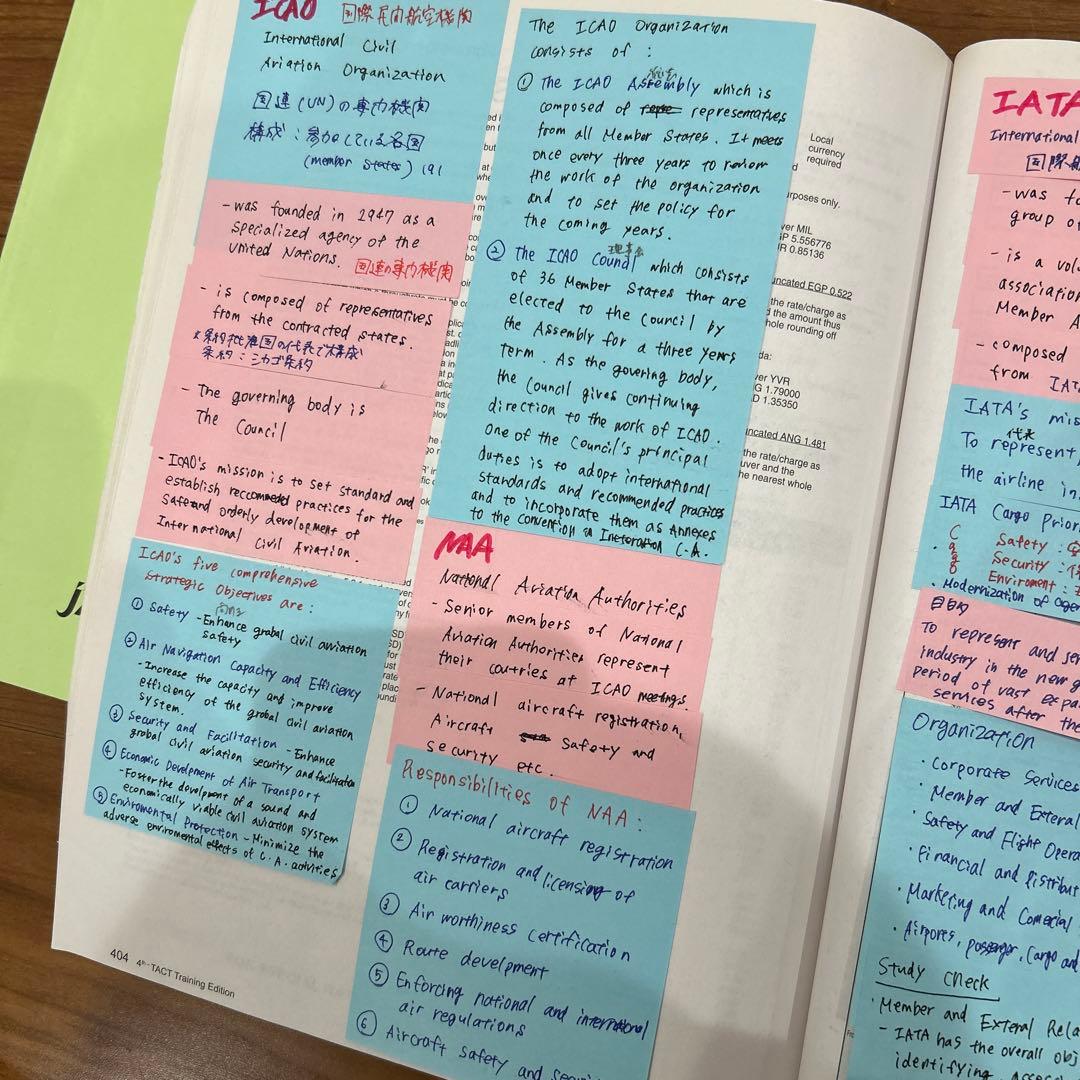 ICAO 国際民間航空機関
International Civil
Aviation Organization
国連(UN)の専門機関
構成:参加している各国
(member states) 191
- was founded in 1947 as a
specialized agency of the
United Nations. 国連の専門機関
- is composed of representatives
from the contracted states.
*条約批准国の代表で構成
条約:シカゴ条約
- The governing body is
The Council
- ICAO's mission is to set standard and
establish recommended practices for the
Safe and orderly development of
International Civil Aviation.
ICAO's five comprehensive
strategic Objectives are :
① Safety - Enhance grobal civil aviation
safety
② Air Navigation Capacity and Efficiency
- Increase the capacity and improve
efficiency of the grobal civil aviation
system.
③ Security and Facilitation - Enhance
grobal civil aviation security and facilitation
④ Economic Develpment of Air Transport
- Foster the develpment of a sound and
economically viable civil aviation system
⑤ Enviromental Protection - Minimize the
adverse enviromental effects of C.A. activities
404 4th - TACT Training Edition
The ICAO Organization
consists of :
① The ICAO Assembly which is
composed of representatives
from all Member States. It meets
once every three years to review
the work of the organization
and to set the policy for
the coming years.
理事会
② The ICAO Council which consists
of 36 Member States that are
elected to the Council by
the Assembly for a three years
term. As the govering body,
the Council gives continuing
direction to the work of ICAO.
One of the Council's principal
duties is to adopt international
standards and recommended practices
and to incorporate them as Annexes
to the Convention on C.A.
NAA
National Aviation Authorities
- Senior members of National
Aviation Authorities represent
their coutries at ICAO meetings.
- National aircraft registration,
Aircraft Safety and
security etc.
Responsibilities of NAA :
① National aircraft registration
② Registration and licensing of
air carriers
③ Air worthiness certification
④ Route develpment
⑤ Enforcing national and international
air regulations
⑥ Aircraft safety and
Local
currency
required
rposes only.
ver MIL
GP 5.556776
R 0.85136
uncated EGP 0.522
the rate/charge as
d the amount thus
hole rounding off
da:
ver YVR
G 1.79000
D 1.35350
uncated ANG 1.481
the rate/charge as
uver and the
e nearest whole
IATA
International
国際航
- was fo
group o
- is a volu
association
Member A
- composed
from IATA
IATA's mis
代表
To represent,
the airline in
IATA Cargo Prior
Safety :
Security :
Enviroment :
・Modernization of
目的
To represent and ser
industry in the new
period of vast expa
services after the
Organization
・Corporate Services
・Member and Exteral
・Safety and Flight Opera
・Financial and Distribut
・Marketing and Comercial
・Airpores, passenger, Cargo and
Study Check
・Member and Exteral Rela
- IATA has the overall obj
identifying,